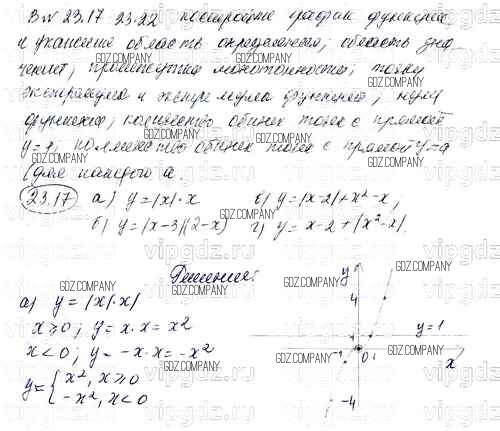 В № 23.17 23.22 постройте график функции
и укажите область определения, область зна-
чений, промежутки монотонности, точки
экстремума и экстремумы функции, нули
функции, количество общих точек с прямой
y=1, количество общих точек с прямой y=a
(для каждого a.
23.17 а) y=|x|·x в) y=|x-2|+x²-x,
б) y=|x-3|(2-x) г) y=x-2+|x²-x|.
Решение:
а) y=|x|·x|
x⩾0; y=x·x=x²
x<0; y=-x·x=-x²
y={x², x⩾0
-x², x<0
y
4
y=1
-1 0 1 x
-4
GDZ.COMPANY
vipgdz.ru